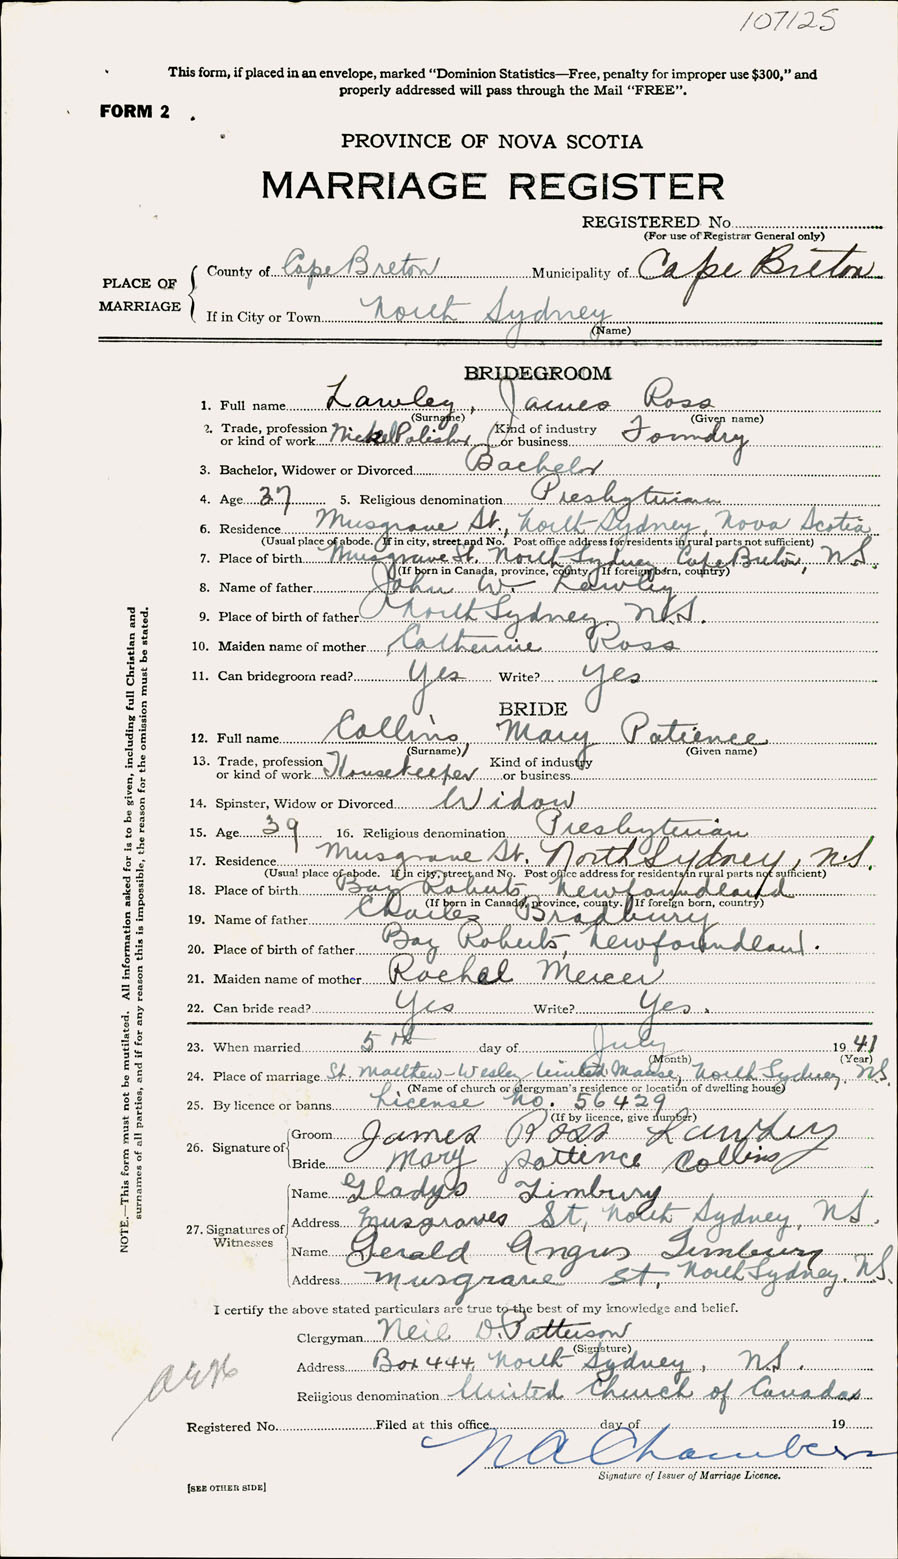 107125
This form, if placed in an envelope, marked "Dominion Statistics—Free, penalty for improper use $300," and
properly addressed will pass through the Mail "FREE".
FORM 2
PROVINCE OF NOVA SCOTIA
MARRIAGE REGISTER
REGISTERED No
(For use of Registrar General only)
PLACE OF MARRIAGE
County of Cape Breton Municipality of Cape Breton
If in City or Town North Sydney
(Name)
BRIDEGROOM
1. Full name Lawley, James Ross
(Surname) (Given name)
2. Trade, profession or kind of work Nickel Polisher Kind of industry or business Foundry
3. Bachelor, Widower or Divorced Bachelor
4. Age 37 5. Religious denomination Presbyterian
6. Residence Musgrave St., North Sydney, Nova Scotia
(Usual place of abode. If in city, street and No. Post office address for residents in rural parts not sufficient)
7. Place of birth Musgrave St. North Sydney Cape Breton, N.S.
(If born in Canada, province, county. If foreign born, country)
8. Name of father John W. Lawley
9. Place of birth of father North Sydney, N.S.
10. Maiden name of mother Catherine Ross
11. Can bridegroom read? Yes Write? Yes
BRIDE
12. Full name Collins, Mary Patience
(Surname) (Given name)
13. Trade, profession or kind of work Housekeeper Kind of industry or business
14. Spinster, Widow or Divorced Widow
15. Age 39 16. Religious denomination Presbyterian
17. Residence Musgrave St. North Sydney, N.S.
(Usual place of abode. If in city, street and No. Post office address for residents in rural parts not sufficient)
18. Place of birth Bay Roberts, Newfoundland
(If born in Canada, province, county. If foreign born, country)
19. Name of father Charles Bradbury
20. Place of birth of father Bay Roberts, Newfoundland.
21. Maiden name of mother Rachel Mercer
22. Can bride read? Yes Write? Yes.
23. When married 5th day of July 1941
(Month) (Year)
24. Place of marriage St. Matthew-Wesley United Manse, North Sydney, N.S.
(Name of church or clergyman's residence or location of dwelling house)
25. By licence or banns License No. 56429
(If by licence, give number)
26. Signature of
Groom James Ross Lawley
Bride Mary Patience Collins
27. Signatures of Witnesses
Name Gladys Timbury
Address Musgraves St, North Sydney, N.S.
Name Gerald Angus Timbury
Address Musgrave St, North Sydney. N.S.
I certify the above stated particulars are true to the best of my knowledge and belief.
Clergyman Neil D. Patterson
(Signature)
Address Box 444, North Sydney, N.S.
Religious denomination United Church of Canada
Registered No. Filed at this office day of 19
N A Chambers
Signature of Issuer of Marriage Licence.
[SEE OTHER SIDE]
NOTE.—This form must not be mutilated. All information asked for is to be given, including full Christian and
surnames of all parties, and if for any reason this is impossible, the reason for the omission must be stated.